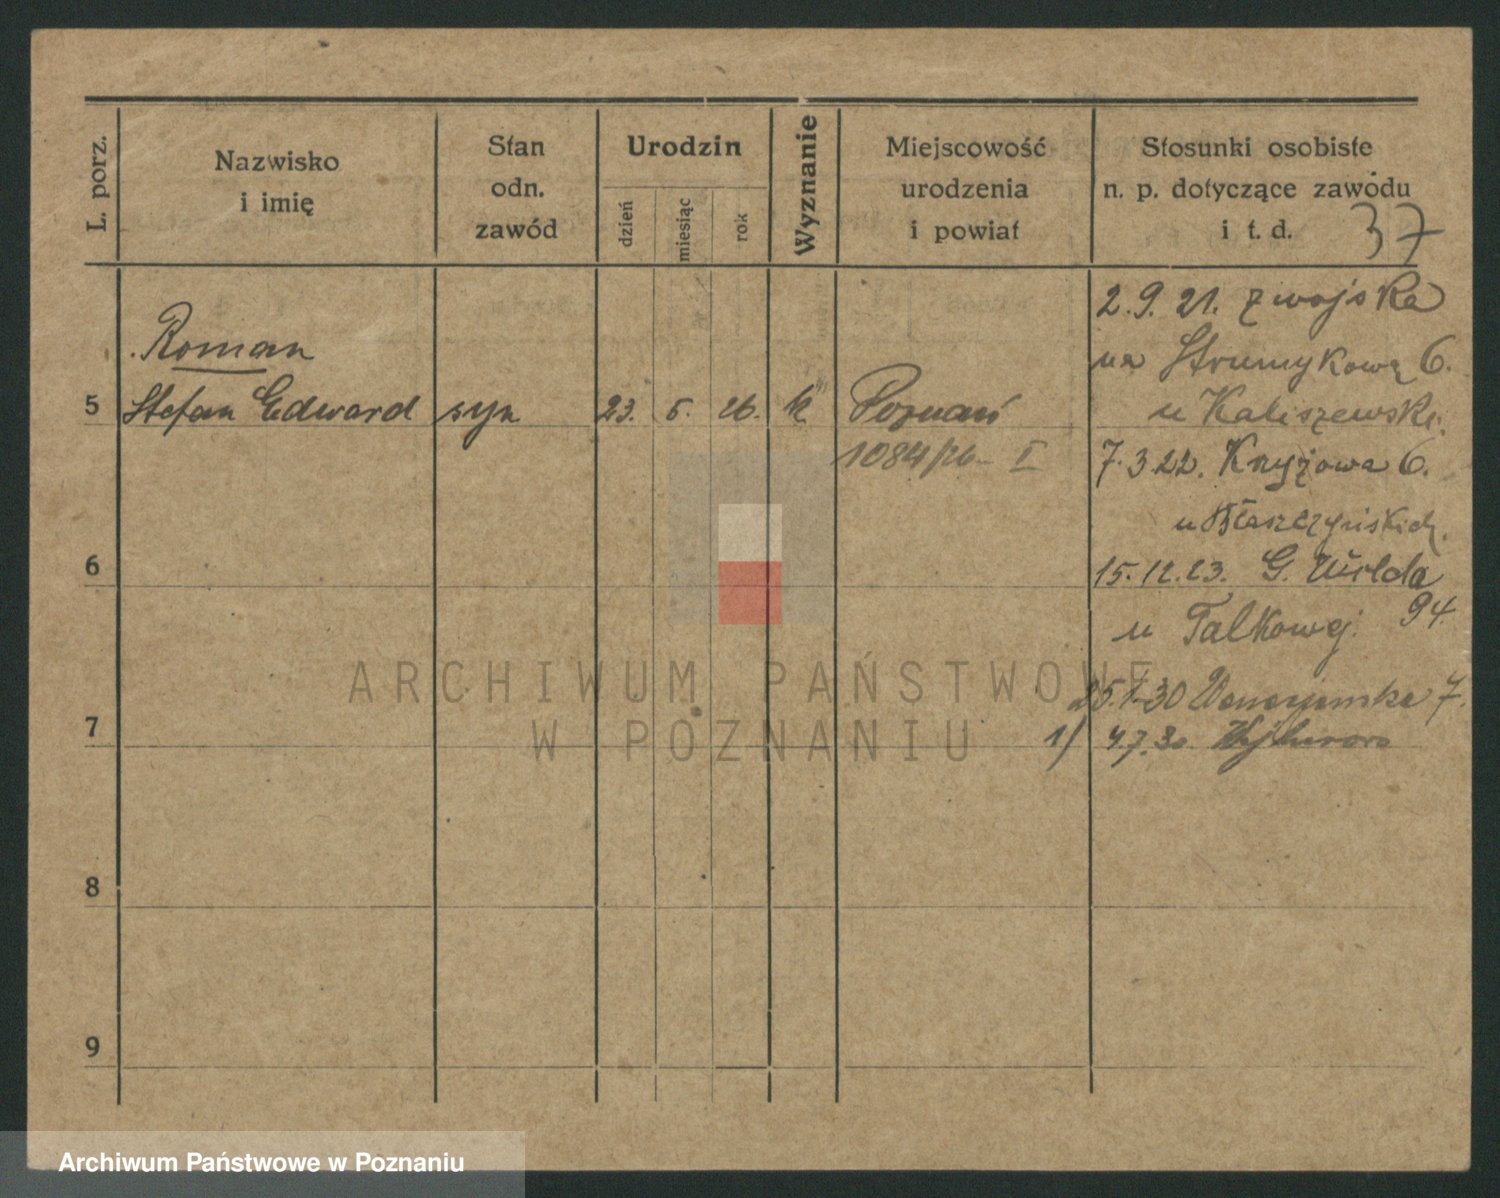 L. porz.
Nazwisko
i imię
Stan
odn.
zawód
Urodzin
dzień
miesiąc
rok
Wyznanie
Miejscowość
urodzenia
i powiat
Stosunki osobiste
n. p. dotyczące zawodu
i t. d.
37
5
Roman
Stefan Edward
syn
23. 5. 26.
k
Poznań
1084/26 - I
2.9.21. z wojska
na Strumykową 6.
u Kaliszewski
7.3.22. Kryżowa 6.
u Błaszczyńskich.
15.12.23. G. Wilda
94.
u Talkowej.
30
7.
1/ 4.7.30.
6
7
8
9
ARCHIWUM PAŃSTWOWE
W POZNANIU
Archiwum Państwowe w Poznaniu